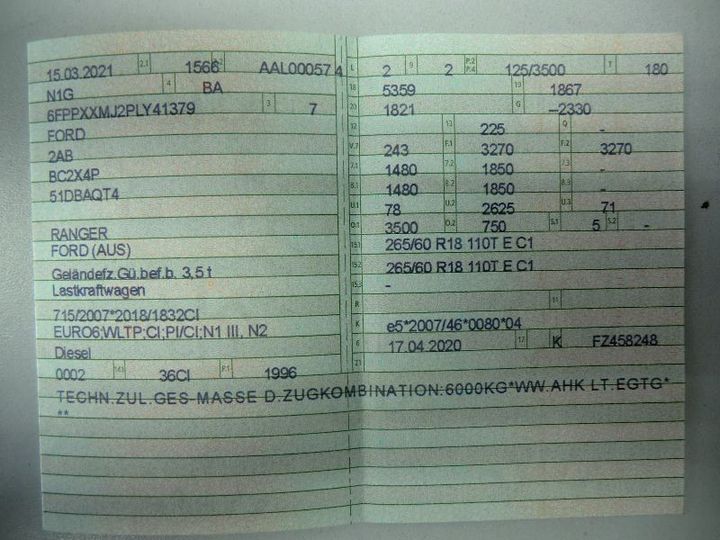 15.03.2021 2.1 1566 2.2 AAL00057 4
N1G 4 BA
6FPPXXMJ2PLY41379 3 7
FORD
2AB
BC2X4P
51DBAQT4
RANGER
FORD (AUS)
Geländefz.Gü.bef.b. 3,5 t
Lastkraftwagen
715/2007*2018/1832CI
EURO6;WLTP;CI;PI/CI;N1 III, N2
Diesel
0002 14.1 36CI P.1 1996
L 2 9 2 P.2 P.4 125/3500 T 180
18 5359 19 1867
20 1821 G –2330
12 13 225 Q -
V.7 243 F.1 3270 F.2 3270
7.1 1480 7.2 1850 7.3 -
8.1 1480 8.2 1850 8.3 -
U.1 78 U.2 2625 U.3 71
O.1 3500 O.2 750 S.1 5 S.2 -
15.1 265/60 R18 110T E C1
15.2 265/60 R18 110T E C1
15.3 -
R 11
K e5*2007/46*0080*04
6 17.04.2020 17 K FZ458248
21
TECHN.ZUL.GES-MASSE D.ZUGKOMBINATION:6000KG*WW.AHK LT.EGTG*
**